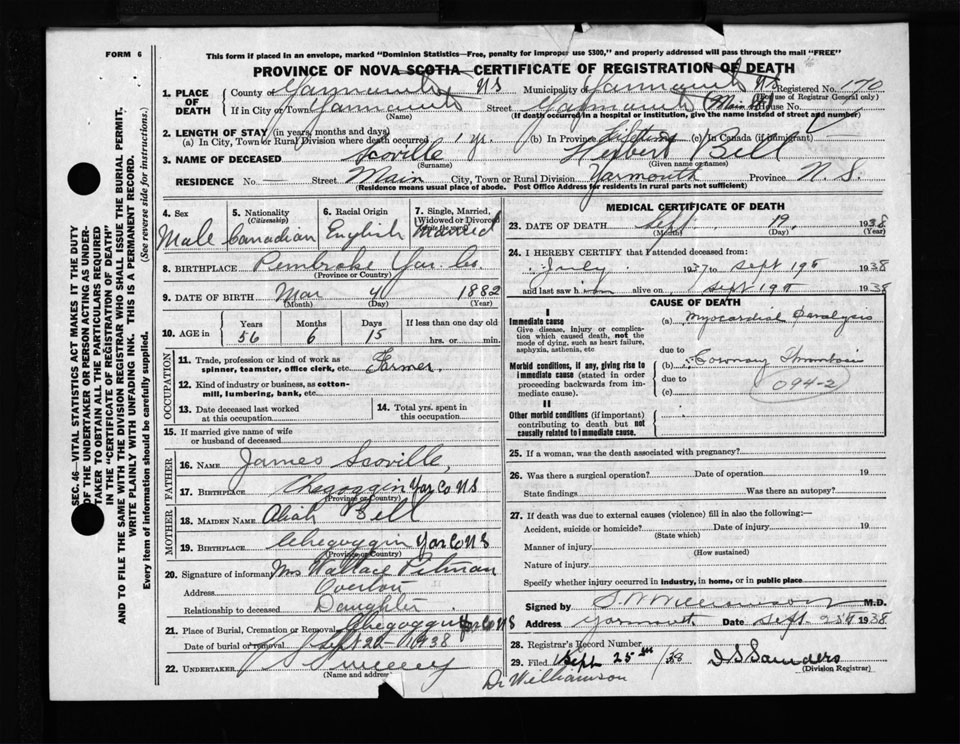 FORM 6
This form if placed in an envelope, marked "Dominion Statistics—Free, penalty for improper use $300," and properly addressed will pass through the mail "FREE"
PROVINCE OF NOVA SCOTIA—CERTIFICATE OF REGISTRATION OF DEATH
1. PLACE OF DEATH County of Yarmouth NS Municipality of Yarmouth NS Registered No. 170
(For use of Registrar General only)
If in City or Town Yarmouth Street Yarmouth (Main St) House No.
(Name) (If death occurred in a hospital or institution, give the name instead of street and number)
2. LENGTH OF STAY (in years, months and days)
(a) In City, Town or Rural Division where death occurred 1 yr. (b) In Province Lifetime (c) In Canada (if immigrant)
3. NAME OF DECEASED Scoville Herbert Bell
(Surname) (Given name or names)
RESIDENCE No. Street Main City, Town or Rural Division Yarmouth Province N.S.
(Residence means usual place of abode. Post Office Address for residents in rural parts not sufficient)
4. Sex Male
5. Nationality (Citizenship) Canadian
6. Racial Origin English
7. Single, Married, Widowed or Divorced Married
8. BIRTHPLACE Pembroke Yar. Co.
(Province or Country)
9. DATE OF BIRTH Mar 4 1882
(Month) (Day) (Year)
10. AGE in Years Months Days If less than one day old
56 6 15 hrs. or min.
OCCUPATION
11. Trade, profession or kind of work as spinner, teamster, office clerk, etc. Farmer.
12. Kind of industry or business, as cotton-mill, lumbering, bank, etc.
13. Date deceased last worked at this occupation
14. Total yrs. spent in this occupation
15. If married give name of wife or husband of deceased
FATHER
16. NAME James Scoville,
17. BIRTHPLACE Chegoggin Yar Co NS
(Province or Country)
MOTHER
18. MAIDEN NAME Bell
19. BIRTHPLACE Chegoggin Yar Co NS
(Province or Country)
20. Signature of informant Mrs Wallace Pitman
Address Overton
Relationship to deceased Daughter
21. Place of Burial, Cremation or Removal Chegoggin Yar Co NS
Date of burial or removal Sept 20 1938
22. UNDERTAKER Sweeny
(Name and address)
MEDICAL CERTIFICATE OF DEATH
23. DATE OF DEATH Sept. 19, 1938
(Month) (Day) (Year)
24. I HEREBY CERTIFY that I attended deceased from:
July 1937 to Sept 19th 1938
and last saw him alive on Sept 19th 1938
CAUSE OF DEATH
I
Immediate cause (a) Myocardial Paralysis
Give disease, injury or complication which caused death, not the mode of dying, such as heart failure, asphyxia, asthenia, etc
due to
Morbid conditions, if any, giving rise to immediate cause (stated in order proceeding backwards from immediate cause).
(b) Coronary Thrombosis
due to
(c)
094-2
II
Other morbid conditions (if important) contributing to death but not causally related to immediate cause.
25. If a woman, was the death associated with pregnancy?
26. Was there a surgical operation? Date of operation 19
State findings Was there an autopsy?
27. If death was due to external causes (violence) fill in also the following:—
Accident, suicide or homicide? Date of injury 19
(State which)
Manner of injury
(How sustained)
Nature of injury
Specify whether injury occurred in industry, in home, or in public place
Signed by Williamson M.D.
Address Yarmouth Date Sept. 25th 1938
28. Registrar's Record Number
29. Filed Sept 25th /38 Saunders
(Division Registrar)
Dr Williamson
SEC. 46—VITAL STATISTICS ACT MAKES IT THE DUTY
OF THE UNDERTAKER OR PERSON ACTING AS UNDER-
TAKER TO OBTAIN ALL THE PARTICULARS REQUIRED
IN THE "CERTIFICATE OF REGISTRATION OF DEATH"
AND TO FILE THE SAME WITH THE DIVISION REGISTRAR WHO SHALL ISSUE THE BURIAL PERMIT.
WRITE PLAINLY WITH UNFADING INK. THIS IS A PERMANENT RECORD.
Every item of information should be carefully supplied. (See reverse side for instructions.)